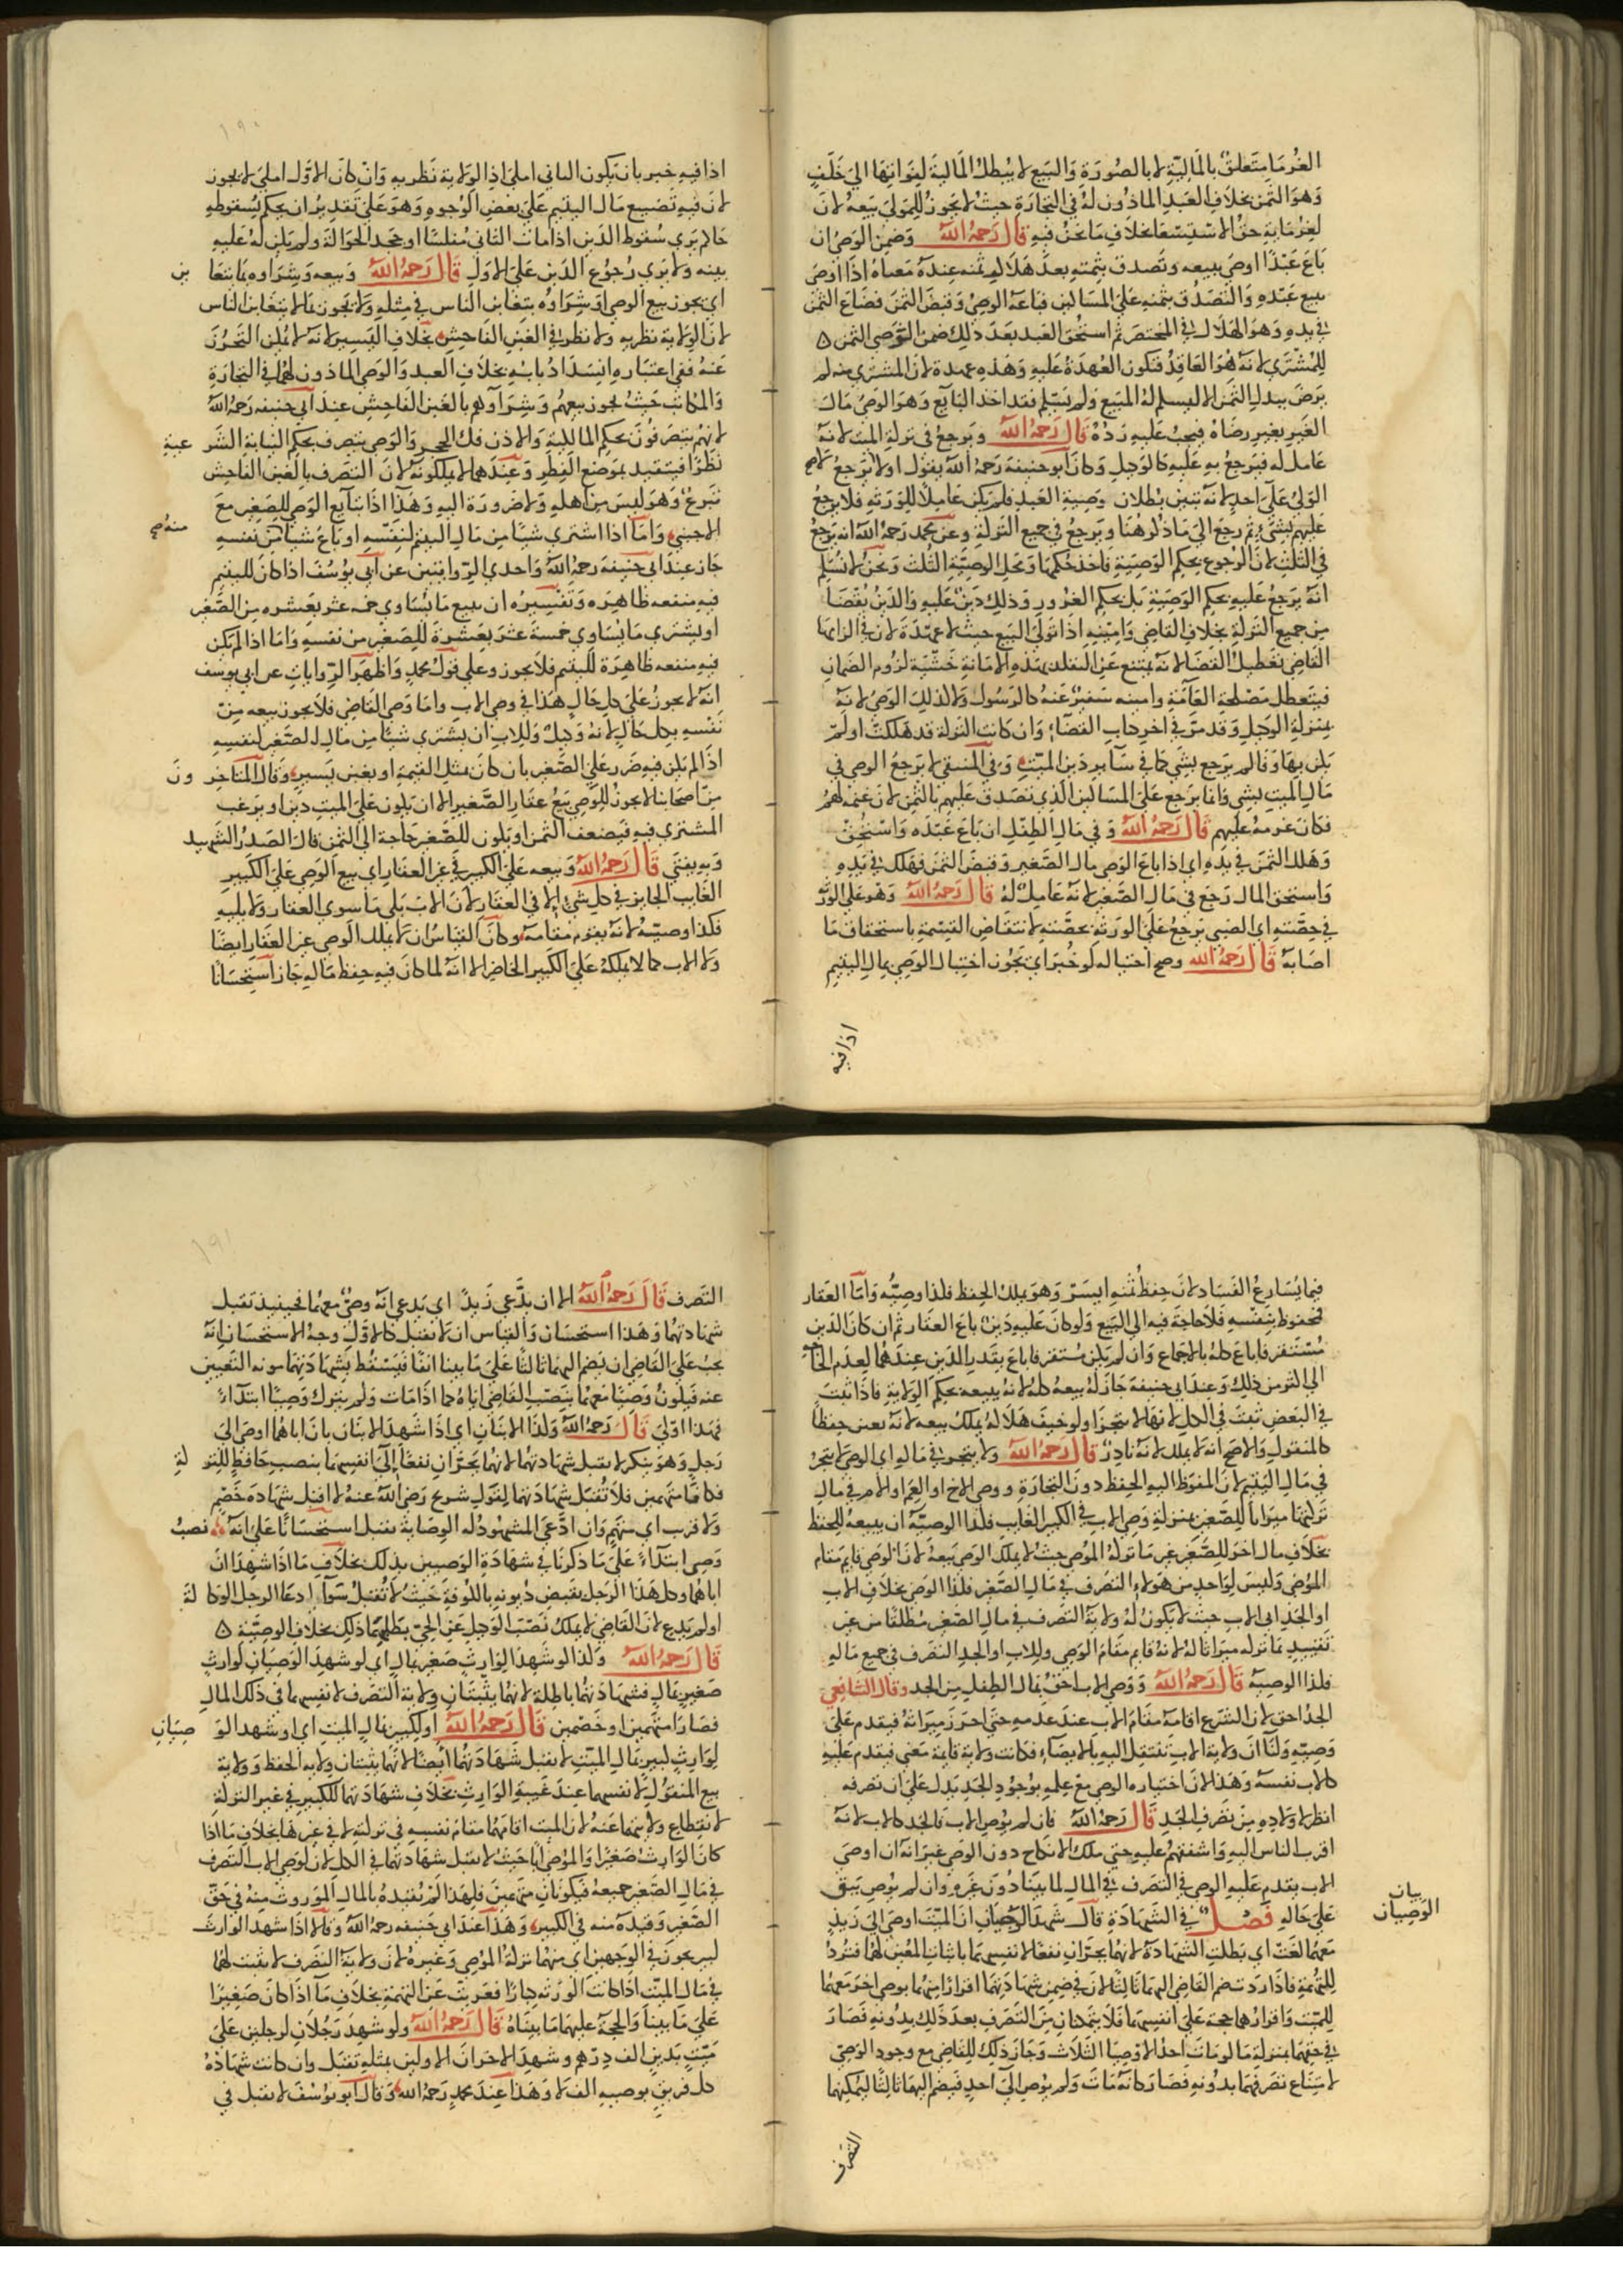 الغرما متعلق بالمالية لا بالصورة والبيع لا يبطل المالية لفواتها الى خلف
وهو الثمن بخلاف العبد الماذون له في التجارة حيث لا يجوز للمولى بيعه لان
لغرمايه حق الاستسعا بخلاف ما نحن فيه قال رحمه الله وضمن الوصي ان
باع عبدا اوصى ببيعه وتصدق بثمنه بعد هلاك ثمنه عنده معناه اذا اوصى
ببيع عبده والتصدق بثمنه على المساكين فباعه الوصي وقبض الثمن فضاع الثمن
في يده وهو الهلاك في المختصر ثم استحق العبد بعد ذلك ضمن الوصي الثمن
للمشتري لانه هو العاقد فتكون العهدة عليه وهذه عهدة لان المشتري منه لم
يرض ببدل الثمن الا ليسلم له المبيع ولم يسلم فقد اخذ البايع وهو الوصي مال
الغير بغير رضاه فيجب عليه رده قال رحمه الله ويرجع في تركة الميت لانه
عامل له فيرجع به عليه كالوكيل وكان ابو حنيفة رحمه الله يقول اولا لا يرجع
الوصي على احد لانه تبين بطلان وصية العبد فلم يكن عاملا للورثة فلا يرجع
عليهم بشيء ثم رجع الى ما ذكر هنا ويرجع في جميع التركة وعن محمد رحمه الله انه يرجع
في الثلث لان الرجوع بحكم الوصية فاخذ حكمها ومحل الوصية الثلث ونحن لا نسلم
انه يرجع عليه بحكم الوصية بل بحكم الغرور وذلك دين عليه والدين يقضى
من جميع التركة بخلاف القاضي وامينه اذا تولى البيع حيث لا عهدة لان في الزامها
القاضي تعطيل القضا لانه يمتنع عن التقلد بهذه الامانة خشية لزوم الضمان
فيتعطل مصلحة العامة وامينه سفير عنه كالرسول ولا كذلك الوصي لانه
بمنزلة الوكيل وقد مر في اخر كتاب القضاء وان كانت التركة قد هلكت او لم
يكن بها وفا لم يرجع بشي كما في ساير دين الميت وفي المنتقى لا يرجع الوصي في
مال الميت بشي وانما يرجع على المساكين الذي تصدق عليهم بالثمن لان غنمه لهم
فكان غرمه عليهم قال رحمه الله وفي مال الطفل ان باع عبده واستحق
وهلك الثمن في يده اي اذا باع الوصي مال الصغير وقبض الثمن فهلك في يده
واستحق المال رجع في مال الصغير لانه عامل له قال رحمه الله وهو على الورثة
في حصته اي الصبي يرجع على الورثة بحصته لانتقاض القسمة باستحقاق ما
اصابه قال رحمه الله وصح احتياله لو خيرا اي يجوز احتيال الوصي بمال اليتيم
اذا فيه
اذا فيه خير بان يكون الثاني املى اذ الولاية نظرية وان كان الاول املى لا يجوز
لان فيه تضييع مال اليتيم على بعض الوجوه وهو على تقدير ان يحكم بسقوطه
حاكم يرى سقوط الدين اذا مات الثاني مفلسا او جحد الحوالة ولم يكن له عليه
بينه ولا يرى رجوع الدين على الاول قال رحمه الله وبيعه وشراوه بما يتغا بن
اي يجوز بيع الوصي او شراوه بتغابن الناس في مثله ولا يجوز بما لا يتغابن الناس
لان الولاية نظرية ولا نظر في الغبن الفاحش بخلاف اليسير لانه لا يمكن التحرز
عنه ففي اعتباره انسداد بابه بخلاف العبد والوصي الماذون لهما في التجارة
والمكاتب حيث يجوز بيعهم وشراوهم بالغبن الفاحش عند ابي حنيفه رحمه الله
لانهم يتصرفون بحكم المالكية والاذن فك الحجر والوصي يتصرف بحكم النيابة الشر عية
نظرا فيتقيد بموضع النظر وعندهما لا يملكونه لان التصرف بالغبن الفاحش
تبرع وهو ليس من اهله ولا ضرورة اليه وهذا اذا تبايع الوصي للصغير مع
الاجنبي واما اذا اشترى شيا من مال اليتيم لنفسه او باع شيا من نفسه منه صح
جاز عند ابي حنيفة رحمه الله واحدى الروايتين عن ابي يوسف اذا كان لليتيم
فيه منفعه ظاهره وتفسيره ان يبيع ما يساوي خمسه عشر بعشره من الصغير
او يشتري ما يساوي خمسة عشر بعشرة للصغير من نفسه واما اذا لم يكن
فيه منفعه ظاهرة لليتيم فلا يجوز وعلى قول محمد واظهر الروايات عن ابي يوسف
انه لا يجوز على كل حال هذا في وصي الاب واما وصي القاضي فلا يجوز بيعه من
نفسه بكل حال لانه وكيل وللاب ان يشتري شيا من مال الصغير لنفسه
اذا لم يكن فيه ضرر على الصغير بان كان بمثل القيمة او بغبن يسير وقال المتاخر ون
من اصحابنا لا يجوز للوصي بيع عقار الصغير الا ان يكون على الميت دين او يرغب
المشتري فيه بضعف الثمن او يكون للصغير حاجة الى الثمن قال الصدر الشهيد
وبه يفتى قال رحمه الله وبيعه على الكبير في غير العقار اي بيع الوصي على الكبير
الغايب الجايز في كل شيء الا في العقار لان الاب يلي ما سوى العقار ولا يليه
فكذا وصيه لانه يقوم مقامه وكان القياس ان لا يملك الوصي غير العقار ايضا
ولا الاب كما لا يملكه على الكبير الحاضر الا انه لما كان فيه حفظ ماله جاز استحسانا
فيما يسارع الفساد لان حفظ ثمنه ايسر وهو يملك الحفظ فكذا وصيه واما العقار
محفوظ بنفسه فلا حاجة فيه الى البيع ولو كان عليه دين باع العقار ثم ان كان الدين
مستغرقا باع كله بالاجماع وان لم يكن مستغرقا باع بقدر الدين عندهما لعدم الحاجة
الى اكثر من ذلك وعند ابي حنيفة جاز له بيعه كله لانه يبيعه بحكم الولاية فاذا ثبت
في البعض ثبت في الكل لانها لا تتجزا ولو خيف هلاكه يملك بيعه لانه تعين حفظا
كالمنقول والاصح انه لا يملك لانه نادر قال رحمه الله ولا يتجر في ماله اي الوصي لا يتجر
في مال اليتيم لان المفوض اليه الحفظ دون التجارة ووصي الاخ او العم او الام في مال
تركتها ميراثا للصغير بمنزلة وصي الاب في الكبير الغايب فكذا الوصيه ان يبيعه للحفظ
بخلاف مال اخر للصغير غير ما تركه الموصي حيث لا يملك الوصي بيعه لان الوصي قايم مقام
الموصي وليس لواحد من هولاء التصرف في مال الصغير فكذا الوصي بخلاف الاب
او الجد اي الاب حيث يكون له ولاية التصرف في مال الصغير مطلقا من غير
تقييد بما تركه ميراثا له لانه قايم مقام الوصي وللاب او الجد التصرف في جميع ماله
فكذا الوصيه قال رحمه الله ووصي الاب احق بمال الطفل من الجد وقال الشافعي
الجد احق لان الشرع اقامه مقام الاب عند عدمه حتى احرز ميراثه فيقدم على
وصيه ولنا ان ولاية الاب تنتقل اليه بالايصاء فكانت ولاية قايمة معنى فيقدم عليه
كالاب نفسه وهذا لان اختياره الوصي مع علمه بوجود الجد يدل على ان تصرفه
انظر لاولاده من تصرف الجد قال رحمه الله فان لم يوص الاب فالجد كالاب لانه
اقرب الناس اليه واشفقهم عليه حتى ملك الانكاح دون الوصي غير انه ان اوصى
الاب يقدم عليه الوصي في التصرف في المال لما بينا دون غيره وان لم يوص يبقى
على حاله فصل في الشهادة قال شهد الوصيان ان الميت اوصى الى زيد
بيان
الوصيان
معهما لغت اي بطلت الشهادة لانهما يجران نفعا لانفسهما باثبات المعين لهما فترد
للتهمة فاذا ردت ضم القاضي اليهما ثالثا لان في ضمن شهادتهما اقرارا منهما بوصي اخر معهما
للميت واقرارهما حجة على انفسهما فلا يتمكنان من التصرف بعد ذلك بدونه فصار
في حقهما بمنزلة ما لو مات احد الاوصيا الثلاث وجاز ذلك للقاضي مع وجود الوصي
لامتناع تصرفهما بدونه فصار كانه مات ولم يوص الى احد فيضم اليهما ثالثا ليمكنهما
التصرف
التصرف قال رحمه الله الا ان يدعي زيد اي يدعي انه وصي معهما فحينئذ تقبل
شهادتهما وهذا استحسان والقياس ان لا تقبل كالاول وجه الاستحسان انه
يجب على القاضي ان يضم اليهما ثالثا على ما بينا انفا فيسقط بشهادتهما مونه التعيين
عنه فيكون وصيا معهما بنصب القاضي اياه كما اذا مات ولم يترك وصيا ابتداء
فهذا اولى قال رحمه الله وكذا الابنان اي اذا شهد الابنان بان اباهما اوصى الى
رجل وهو ينكر لا تقبل شهادتهما لانهما يجران نفعا الى انفسهما بنصب حافظ للتر كة
فكانا متهمين فلا تقبل شهادتهما لقول شريح رضي الله عنه لا اقبل شهادة خصم
ولا مريب اي متهم وان ادعى المشهود له الوصاية تقبل استحسانا على انه نصب
وصي ابتداء على ما ذكرنا في شهادة الوصيين بذلك بخلاف ما اذا شهدا ان
اباهما وكل هذا الرجل بقبض ديونه بالكوفة حيث لا تقبل سواء ادعا الرجل الوكا لة
او لم يدع لان القاضي لا يملك نصب الوكيل عن الحي بطلبهما ذلك بخلاف الوصية
قال رحمه الله وكذا لو شهدا لوارث صغير بمال اي لو شهد الوصيان لوارث
صغير بمال فشهادتهما باطلة لانهما يثبتان ولاية التصرف لانفسهما في ذلك المال
فصارا متهمين او خصمين قال رحمه الله او لكبير بمال الميت اي او شهد الو صيان
لوارث كبير بمال الميت لا تقبل شهادتهما ايضا لانهما يثبتان ولاية الحفظ وولاية
بيع المنقول لانفسهما عند غيبة الوارث بخلاف شهادتهما للكبير في غير التركة
لانقطاع ولايتهما عنه لان الميت اقامهما مقام نفسه في تركته لا في غيرها بخلاف ما اذا
كان الوارث صغيرا والموصي ابا حيث لا تقبل شهادتهما في الكل لان لوصي الاب التصرف
في مال الصغير جميعه فيكونان متهمين فلهذا لم نقيده بالمال الموروث منه في حق
الصغير وقيده منه في الكبير وهذا عند ابي حنيفه رحمه الله وقالا اذا شهد الوارث
كبير يجوز في الوجهين اي منهما تركة الموصي وغيره لان ولاية التصرف لا تثبت لهما
في مال الميت اذا كانت الورثه كبارا فعريت عن التهمة بخلاف ما اذا كان صغيرا
على ما بينا والحجة عليهما ما بيناه قال رحمه الله ولو شهد رجلان لرجلين على
ميت بدين الف درهم وشهد الاخران الاولين بمثله تقبل وان كانت شهادة
كل فريق بوصيه الف لا وهذا عند محمد رحمه الله وقال ابو يوسف لا تقبل في